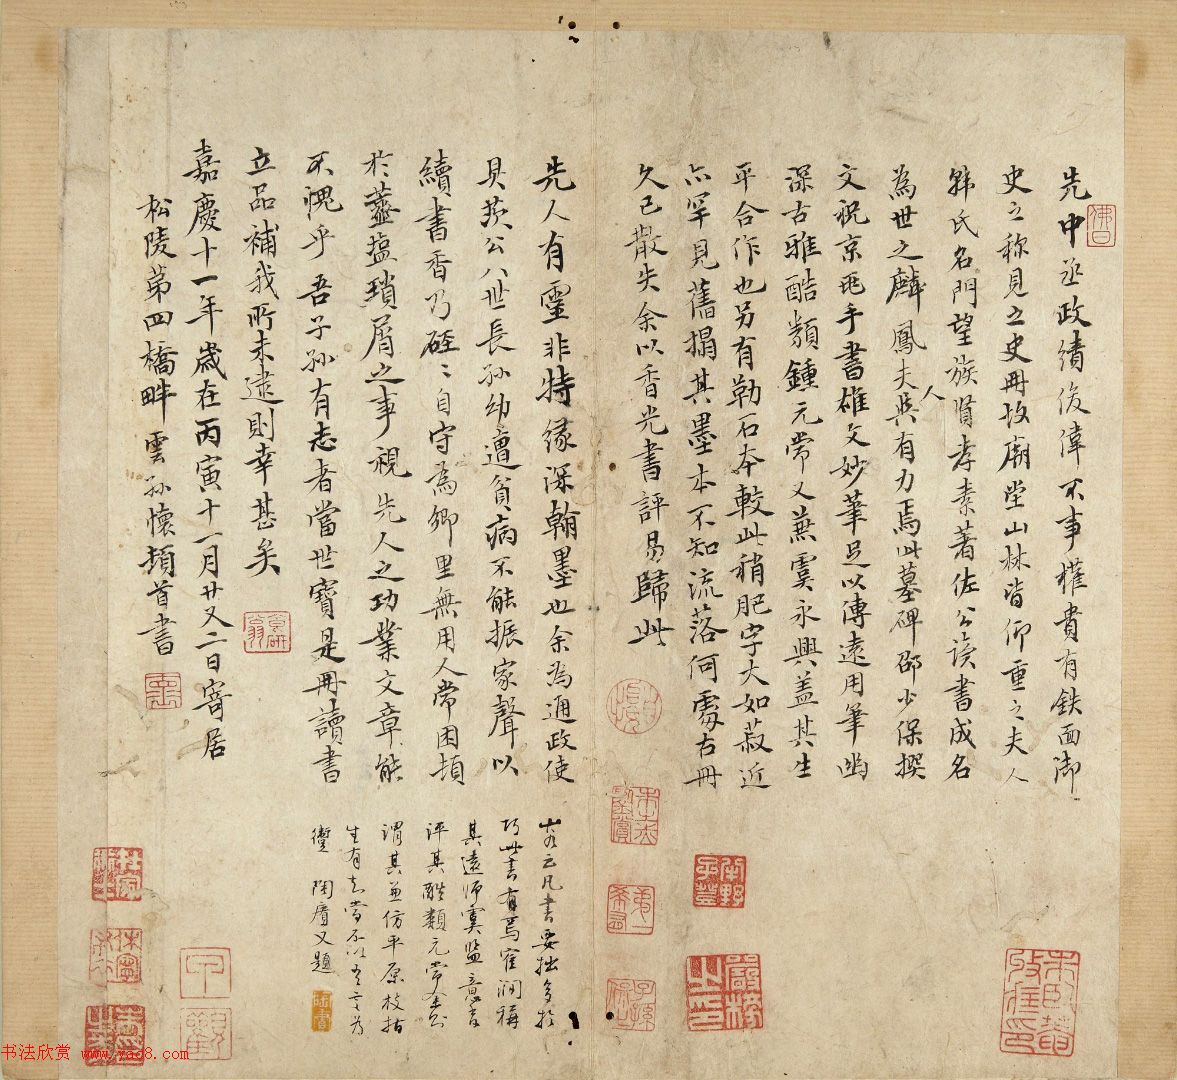 先中丞政績俊偉不事權貴有鉄面御
史之称見之史冊故廟堂山林皆仰重之夫人
韩氏名門望族賢孝素著佐公读書成名
為世之麟鳳夫人與有力焉此墓碑邵少保撰
文祝京兆手書雄文妙筆足以傳遠用筆幽
深古雅酷類鍾元常又兼虞永興盖其生
平合作也另有勒石本較此稍肥字大如菽近
亦罕見舊搨其墨本不知流落何處右冊
久已散失余以香光書評易歸此
先人有靈非特缘深翰墨也余為通政使
貝羨公八世長孙幼遭貧病不能振家聲以
續書香乃硜〻自守為鄉里無用人常困頓
於虀塩瑣屑之事視先人之功業文章能
不愧乎吾子孙有志者當世寶是冊讀書
立品補我所未逮則幸甚矣
嘉慶十一年歲在丙寅十一月廿又二日寄居
松陵第四橋畔雲孙懷頓首書
凡書要拙多於
巧此書有焉
其遠师虞監
评其酷類元常
謂其兼仿平原枝指
生有知當不以吾言为
陶賡又題
书法欣赏 www.yac8.com